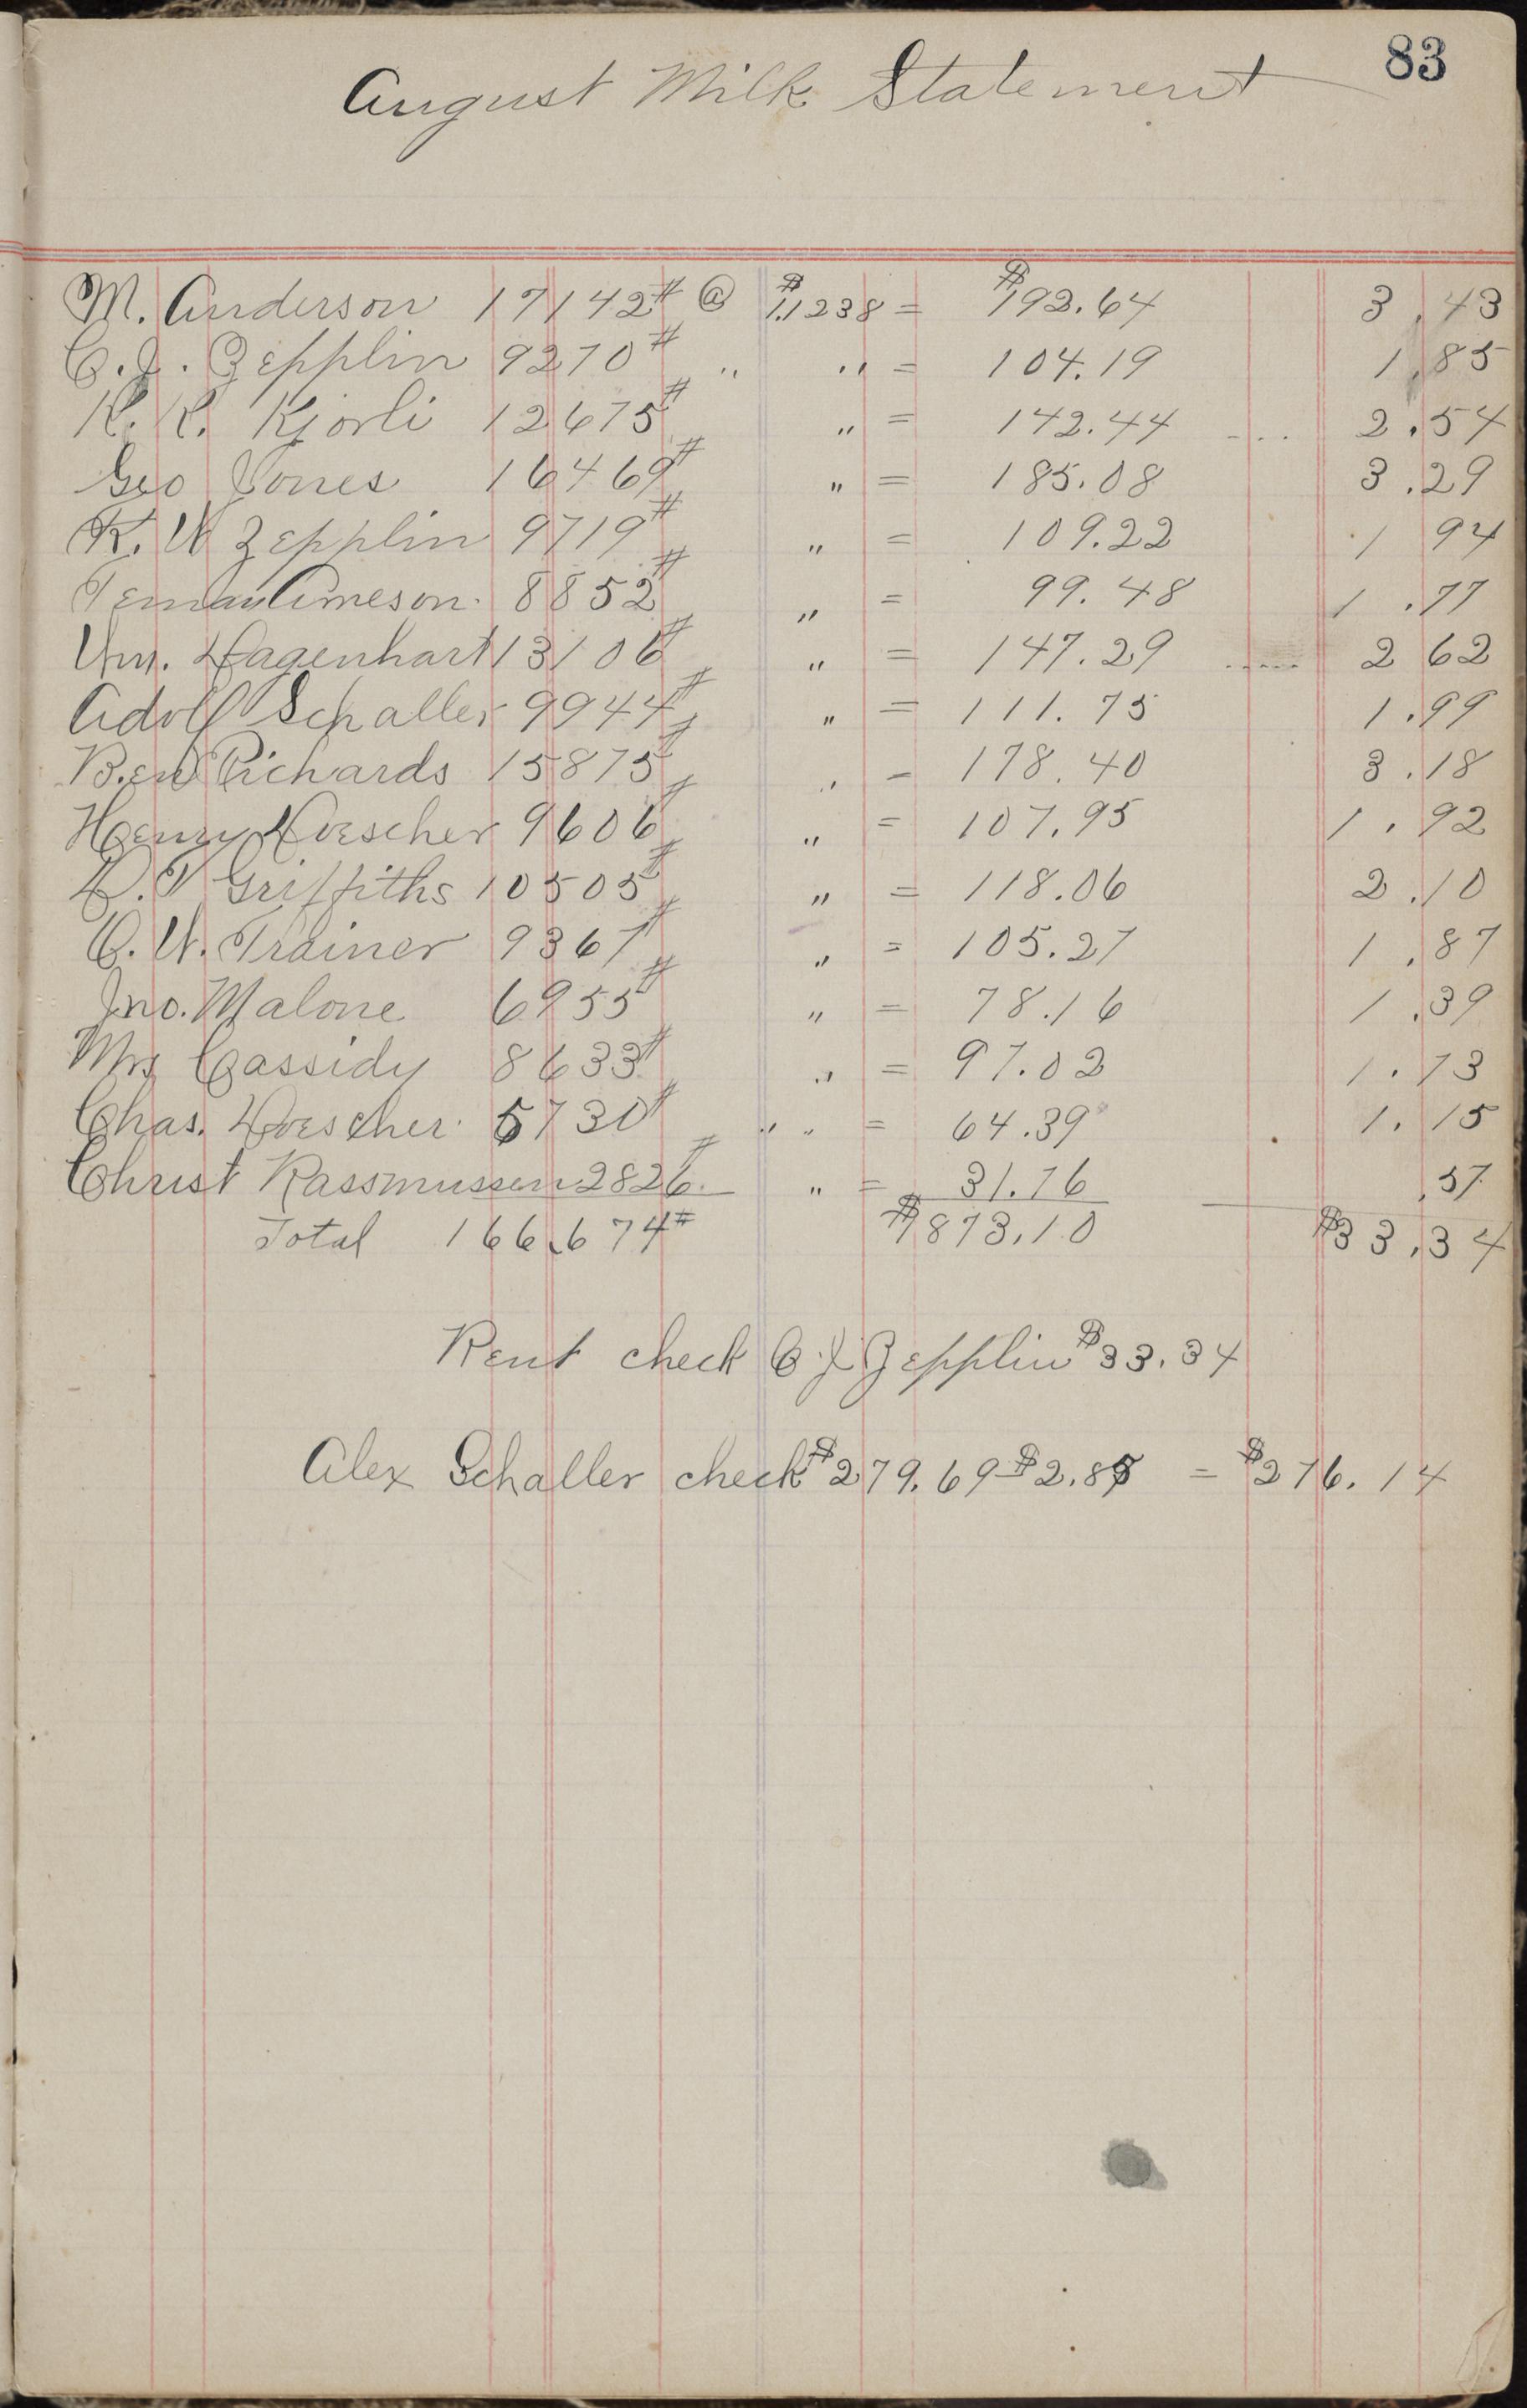 83
August Milk Statement
M. Anderson 17142# @ $1.1238 = $192.64 3.43
C.J. Zepplin 9270# " " = 104.19 1.85
K. K. Kjorli 12675# " = 142.44 .... 2.54
Geo Jones 16469# " = 185.08 3.29
K. W Zepplin 9719# " = 109.22 1 94
Arneson. 8852# " = 99.48 1.77
Wm. Hagenhart 13106# " = 147.29 ...... 2 62
Adolf Schaller 9944# " = 111.75 1.99
Ben Richards 15875# " = 178.40 3.18
Henry Doescher 9606# " = 107.95 1.92
D. T. Griffiths 10505# " = 118.06 2.10
C. W. Trainer 9367# " = 105.27 1.87
Jno. Malone 6955# " = 78.16 1.39
Mrs Cassidy 8633# " = 97.02 1.73
Chas. Doescher 5730# " " = 64.39 1.15
Christ Rassmussen 2826# " = 31.76 .57
Total 166,674# $1873.10 $33.34
Rent check C.J. Zepplin $33.34
Alex Schaller check $279.69 - $2.85 = $276.14